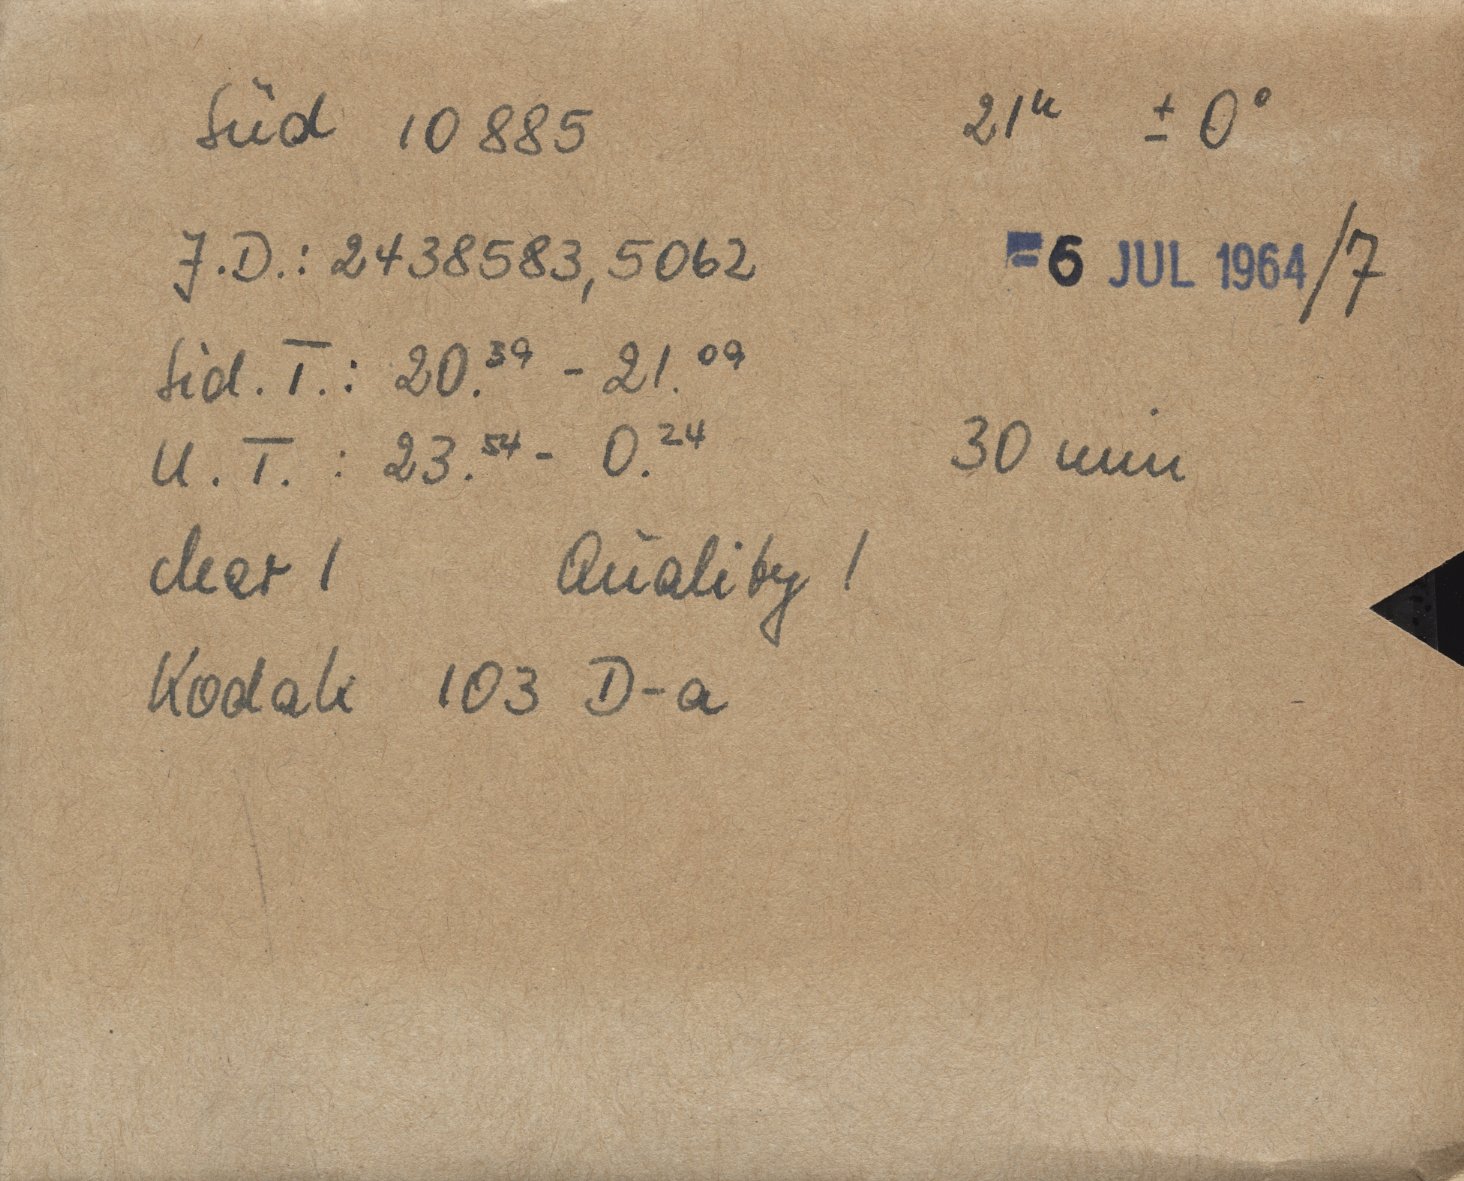 Süd 10885 21ʰ ± 0°
J.D.: 2438583,5062 6 JUL 1964/7
Sid. T.: 20.³⁹ - 21.⁰⁹
U. T. : 23.⁵⁴ - 0.²⁴ 30 min
clear 1 Quality 1
Kodak 103 D-a